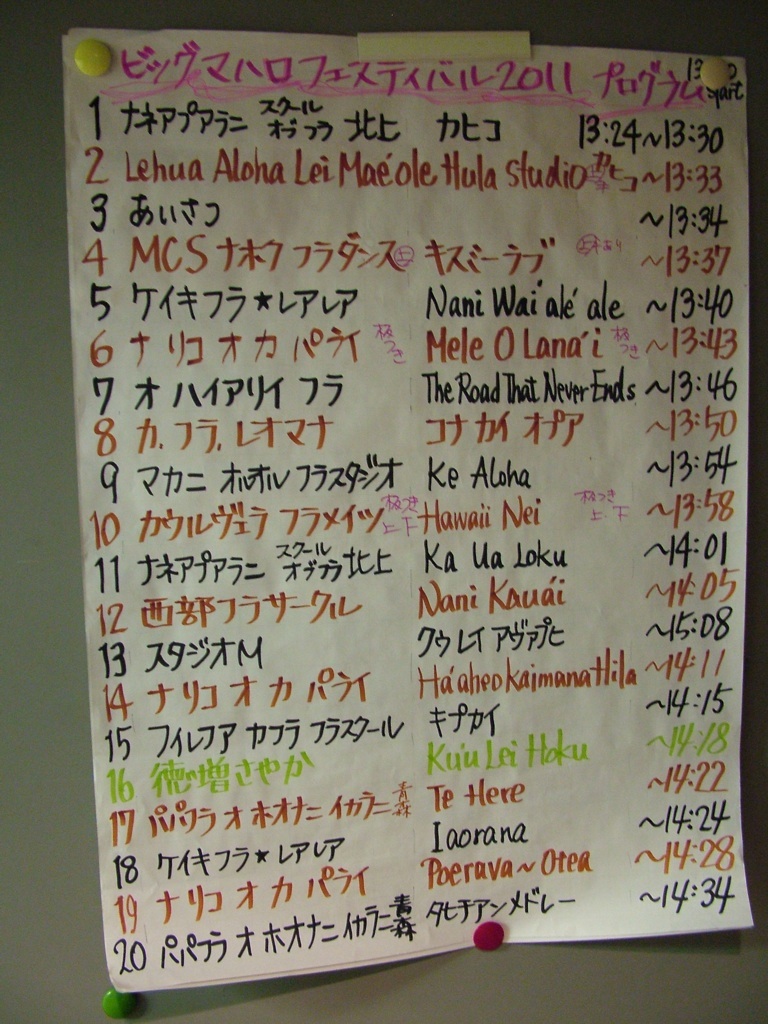 ビッグマハロフェスティバル2011 プログラム start
1 ナネアプアラニ スクールオブフラ 北上 カヒコ 13:24~13:30
2 Lehua Aloha Lei Mae'ole Hula Studio カヒコ ~13:33
3 あいさつ ~13:34
4 MCS ナホク フラダンス 上 キスミーラブ ~13:37
5 ケイキフラ★レアレア Nani Wai'ale'ale ~13:40
6 ナ リコ オ カ パライ 板つき Mele O Lana'i 板つき ~13:43
7 オ ハイアリイ フラ The Road That Never Ends ~13:46
8 カ.フラ.レオマナ コナ カイ オプア ~13:50
9 マカニ オルオル フラスタジオ Ke Aloha ~13:54
10 カウルヴェラ フラメイツ 板つき 上.下 Hawaii Nei 板つき 上.下 ~13:58
11 ナネアプアラニ スクールオブフラ 北上 Ka Ua Loku ~14:01
12 西部フラサークル Nani Kauái ~14:05
13 スタジオM クウ レイ アヴァプヒ ~15:08
14 ナ リコ オ カ パライ Há'aheo Kaimana Hila ~14:11
15 フイレフア カフラ フラスクール キプカイ ~14:15
16 徳増さやか Ku'u Lei Hoku ~14:18
17 パパフラ オ ホオナニ イカラニ 青森 Te Here ~14:22
18 ケイキフラ★レアレア Iaorana ~14:24
19 ナ リコ オ カ パライ Poerava~Otea ~14:28
20 パパフラ オ ホオナニ イカラニ 青森 タヒチアンメドレー ~14:34